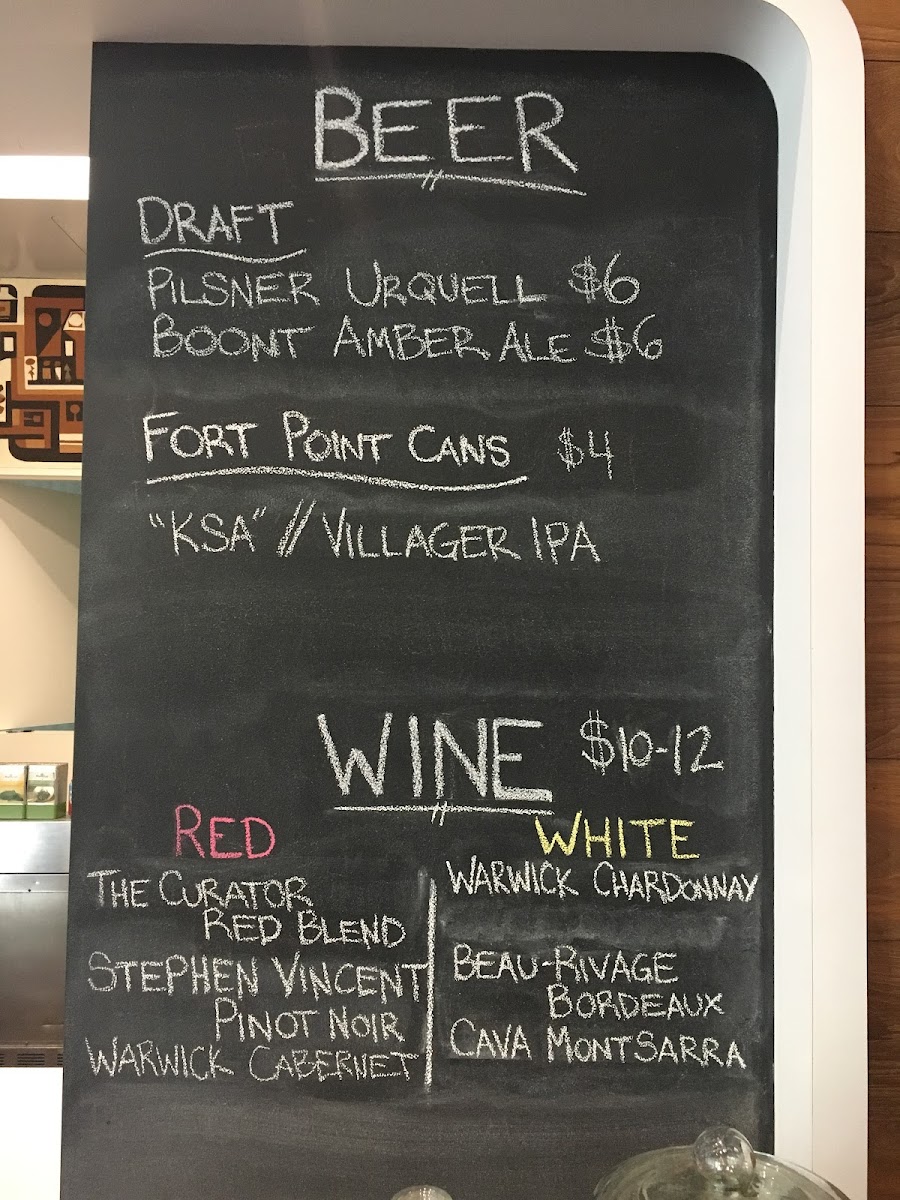 BEER
DRAFT
PILSNER URQUELL $6
BOONT AMBER ALE $6
FORT POINT CANS $4
"KSA" // VILLAGER IPA
WINE $10-12
RED
THE CURATOR
RED BLEND
STEPHEN VINCENT
PINOT NOIR
WARWICK CABERNET
WHITE
WARWICK CHARDONNAY
BEAU-RIVAGE
BORDEAUX
CAVA MONTSARRA